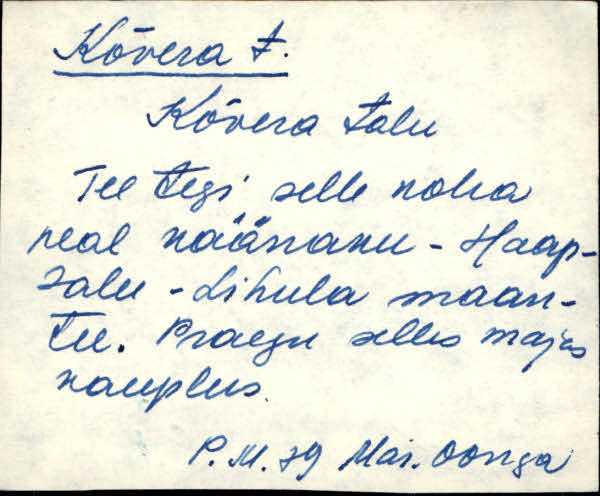 Kõvera t.
Kõvera talu
Tee tegi selle koha
peal käänaku - Haap-
salu - Lihula maan-
tee. Praegu selles majas
kauplus.
P. M. 79 Mar. Oonga